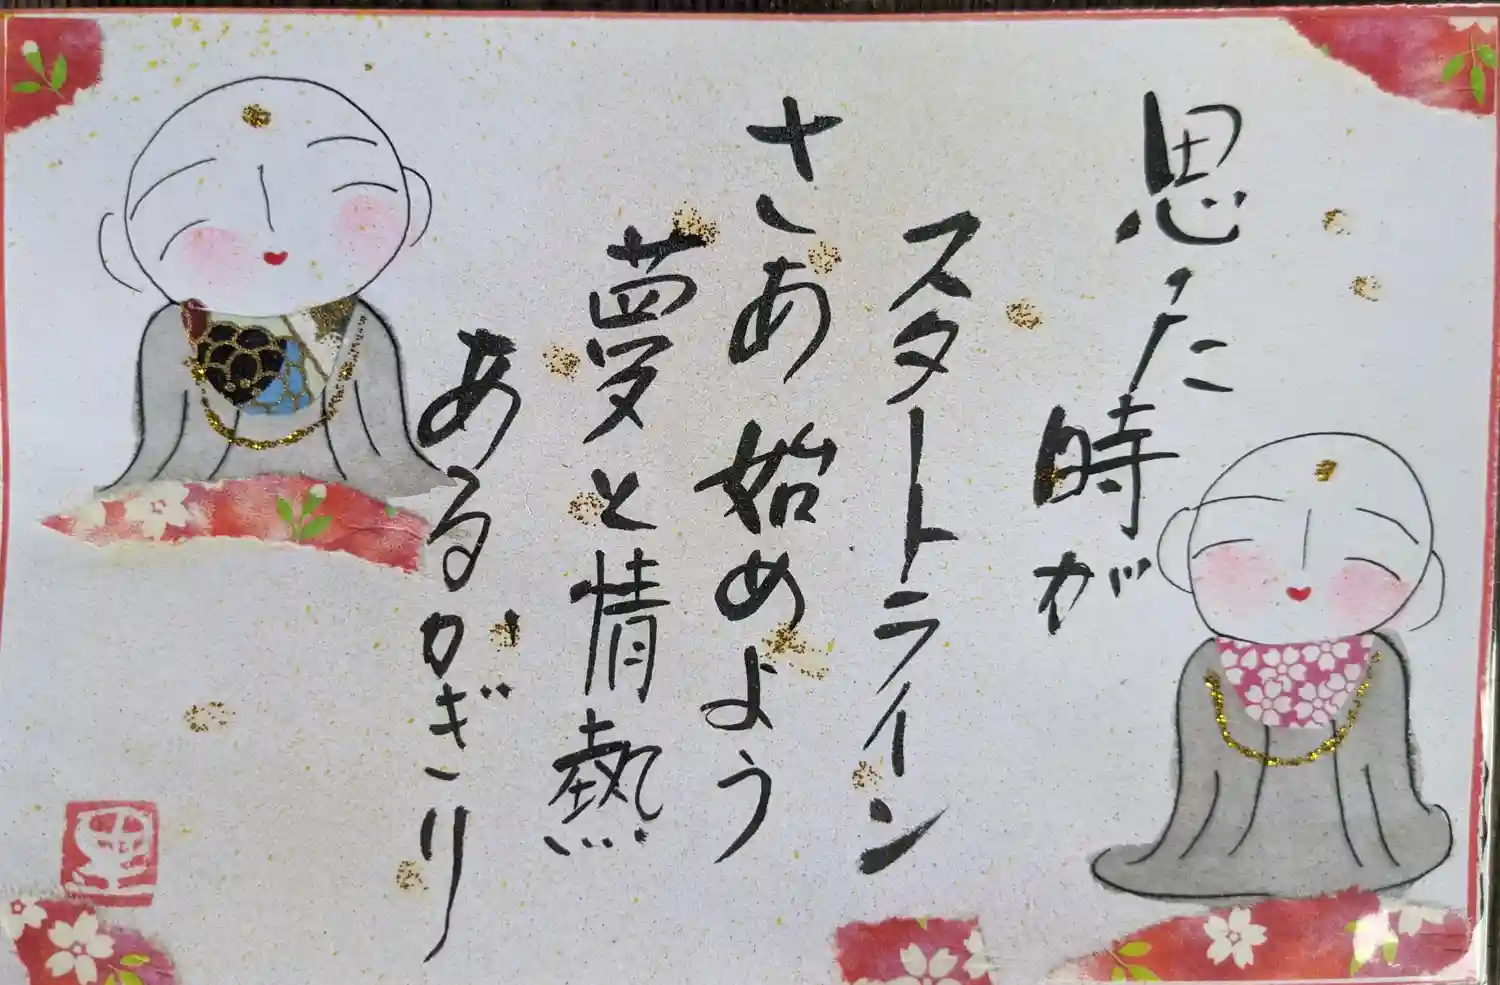 思った時が
スタートライン
さあ始めよう
夢と情熱
あるかぎり
里